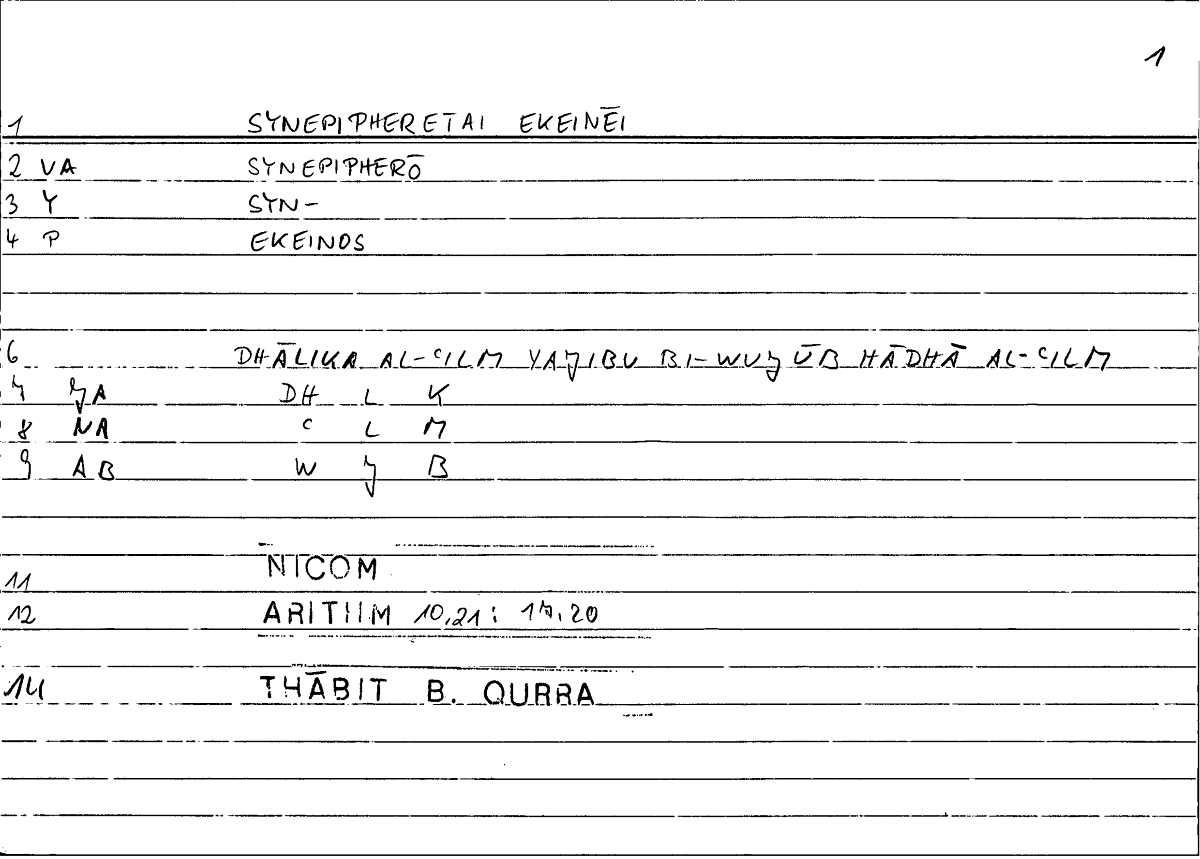 1
1 SYNEPIPHERETAI EKEINĒI
2 VA SYNEPIPHERŌ
3 Y SYN-
4 P EKEINOS
6 DHĀLIKA AL-ʿILM YAJIBU BI-WUJŪB HĀDHĀ AL-ʿILM
7 JA DH L K
8 NA ʿ L M
9 AB W J B
11 NICOM
12 ARITHM 10,21: 17,20
14 THĀBIT B. QURRA